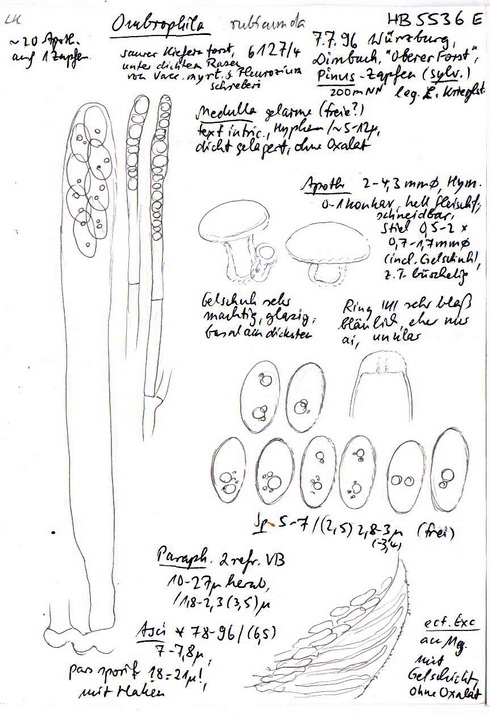 ~20 Apoth.
auf 1 Zapfen
Ombrophila rubicunda
HB 5536 E
saurer Kiefernforst, 6127/4
unter dichtem Rasen
von Vacc. myrt. & Pleurozium
schreberi
7.7.96 Würzburg,
Dimbach, "Oberer Forst",
Pinus-Zapfen (sylv.)
200 mNN leg. L. Krieglst
Medulla gelarme (freie?)
text intric., Hyphen /~5-12µ,
dicht gelagert, ohne Oxalat
Apoth 2-4,3 mmø, Hym.
0-1 konkav, hell fleischf.,
schneidbar,
Stiel 0,5-2 x
0,7-1,7 mmø
(incl. Gelschuh),
z.T. büschelig
Gelschuh sehr
mächtig, glasig,
basal am dicksten
Ring IKI sehr blaß
bläulich, eher nur
ai, unklar
Sp 5-7/(2,5) 2,8-3µ (frei)
(-3,4)
Paraph. 2 refr. VB
10-27µ herab,
/1,8-2,3(3,5)µ
Asci * 78-96/(6,5)
7-7,8µ,
pars sporif. 18-21µ!,
mit Haken
ect. Exc
an Mg.
mit
Gelschicht,
ohne Oxalat